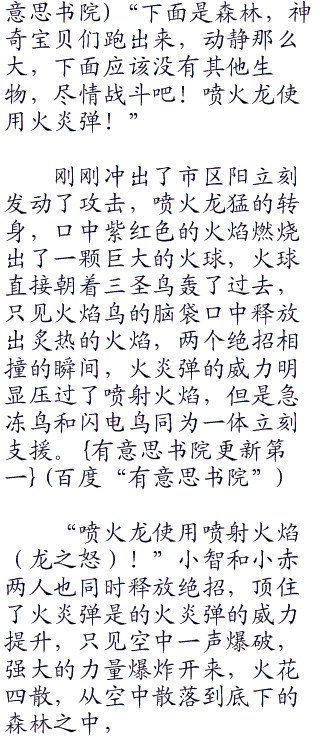 意思书院)“下面是森林，神
奇宝贝们跑出来，动静那么
大，下面应该没有其他生
物，尽情战斗吧！喷火龙使
用火炎弹！”
刚刚冲出了市区阳立刻
发动了攻击，喷火龙猛的转
身，口中紫红色的火焰燃烧
出了一颗巨大的火球，火球
直接朝着三圣鸟轰了过去，
只见火焰鸟的脑袋口中释放
出炙热的火焰，两个绝招相
撞的瞬间，火炎弹的威力明
显压过了喷射火焰，但是急
冻鸟和闪电鸟同为一体立刻
支援。{有意思书院更新第
一}(百度“有意思书院”)
“喷火龙使用喷射火焰
（龙之怒）！”小智和小赤
两人也同时释放绝招，顶住
了火炎弹是的火炎弹的威力
提升，只见空中一声爆破，
强大的力量爆炸开来，火花
四散，从空中散落到底下的
森林之中，